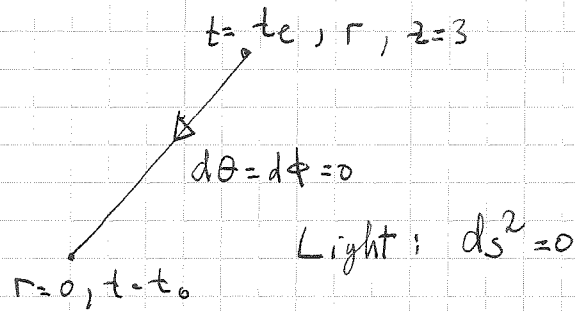 t= te , r , z=3
dθ=dϕ=0
Light : ds²=0
r=0, t=t₀